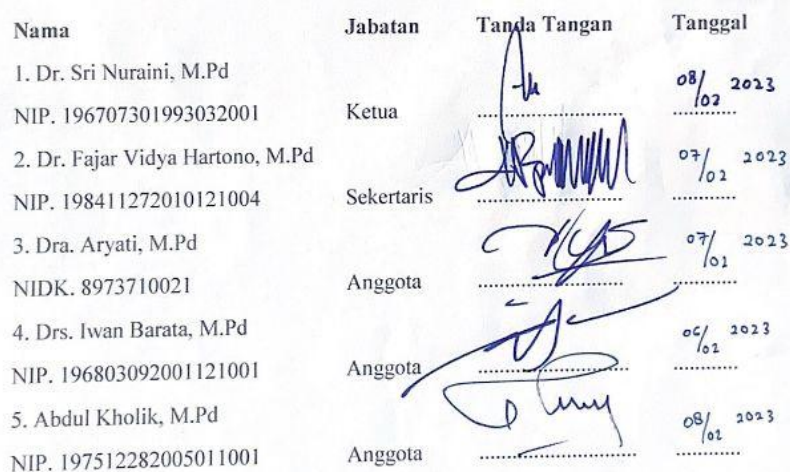 Nama Jabatan Tanda Tangan Tanggal
1. Dr. Sri Nuraini, M.Pd
NIP. 196707301993032001 Ketua .................... 08/02 2023
2. Dr. Fajar Vidya Hartono, M.Pd
NIP. 198411272010121004 Sekertaris .................... 07/02 2023
3. Dra. Aryati, M.Pd
NIDK. 8973710021 Anggota .................... 07/02 2023
4. Drs. Iwan Barata, M.Pd
NIP. 196803092001121001 Anggota .................... 06/02 2023
5. Abdul Kholik, M.Pd
NIP. 197512282005011001 Anggota .................... 08/02 2023